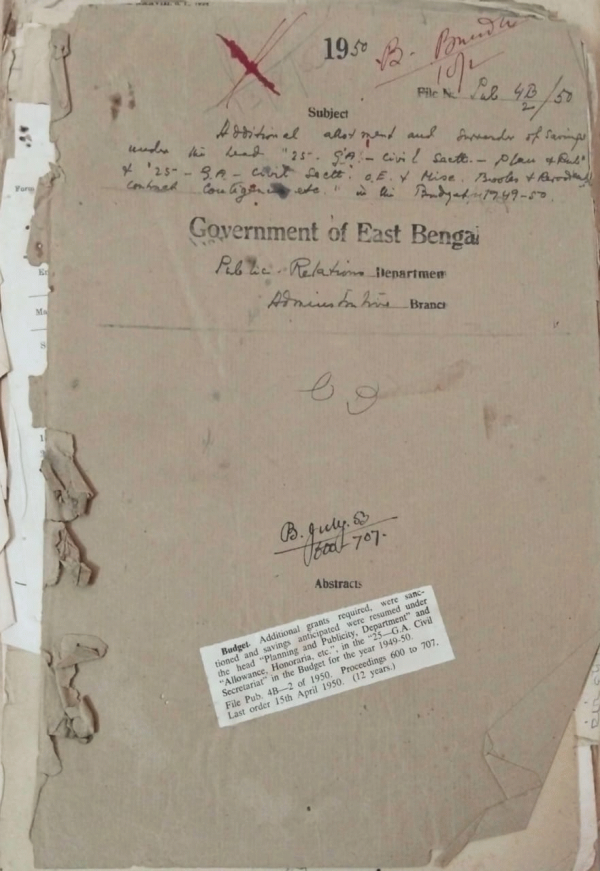 1950
B. Bundle
File No. Pub 4B/2/50
Subject
Additional allotment and surrender of savings
under the head "25- G.A. - Civil Sectt. - Plan & Publ"
& "25 - G.A - Civil Sectt. O.E. & Misc. Books & Periodicals
contract Contingencies etc." in the Budget 1949-50.
Government of East Bengal
Public Relations Departmen
Administrative Branch
B. July. 53
600-707.
Abstracts
Budget. Additional grants required, were sanc-
tioned and savings anticipated were resumed under
the head "Planning and Publicity, Department" and
"Allowance, Honoraria, etc.", in the "25—G.A. Civil
Secretariat" in the Budget for the year 1949-50.
File Pub. 4B—2 of 1950. Proceedings 600 to 707.
Last order 15th April 1950. (12 years.)